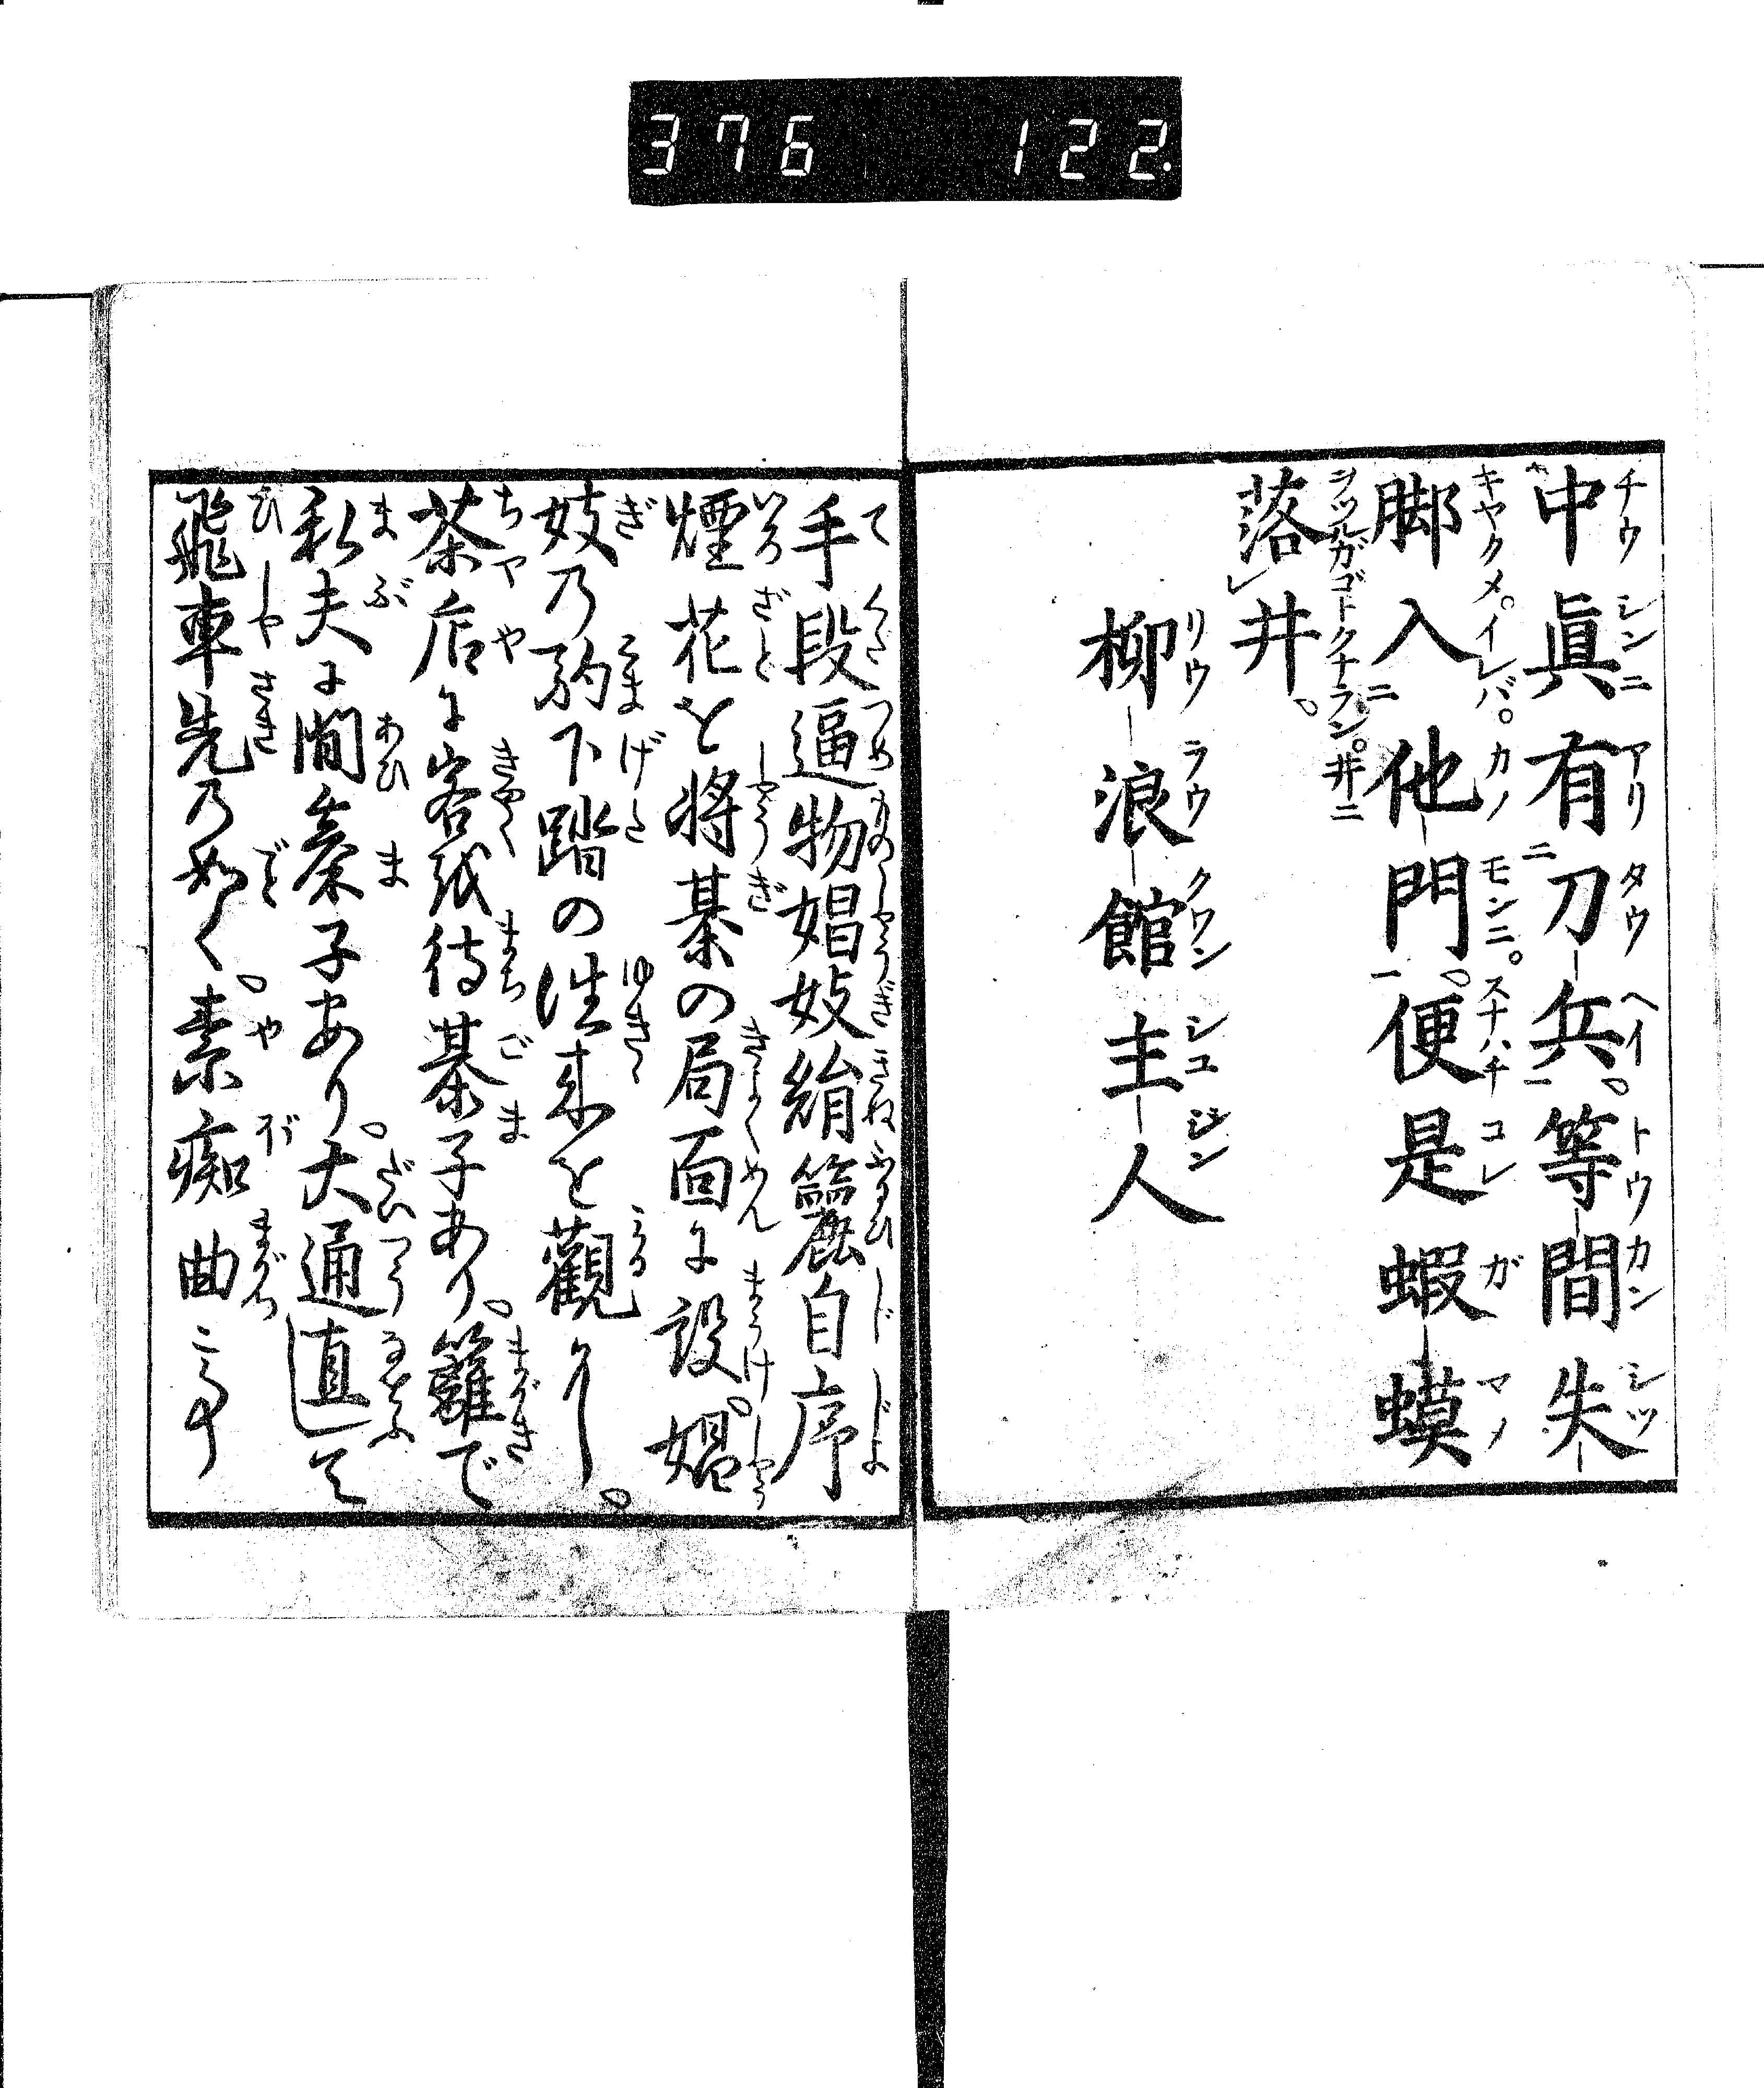 376 122.
中眞有刀兵。等間失
脚入他門。便是蝦蟆
落井。
柳浪館主人
手段逼物娼妓絹籭自序
煙花を将棊の局面に設。娼
妓乃駒下踏の徃来を觀りし。
茶店に客を待棊子あり。籬で
私夫に間棊子あり。大通直して
飛車先乃如く。素痴曲こみ